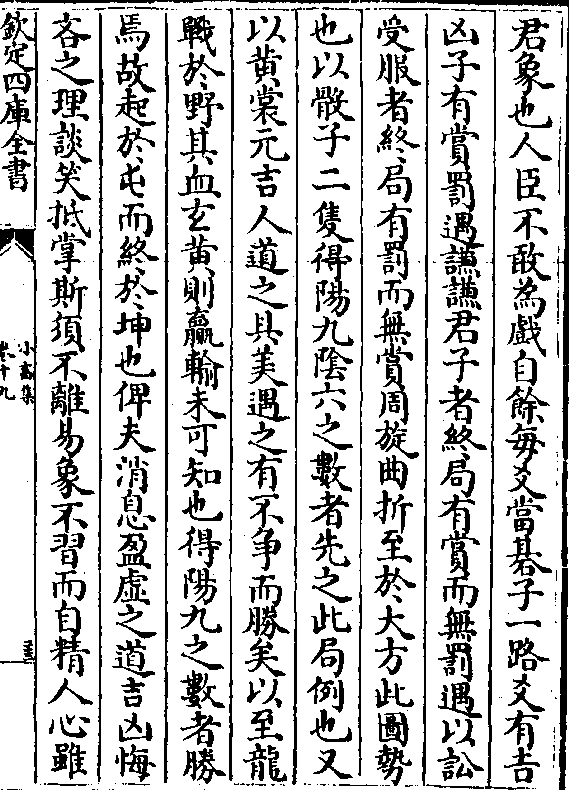 君象也人臣不敢為戲自餘每爻當碁子一路爻有吉
凶子有賞罰遇謙謙君子者終局有賞而無罰遇以訟
受服者終局有罰而無賞周旋曲折至於大方此圖勢
也以骰子二隻得陽九陰六之數者先之此局例也又
以黄裳元吉人道之具美遇之有不爭而勝矣以至龍
戰於野其血玄黄則贏輸未可知也得陽九之數者勝
焉故起於屯而終於坤也俾夫消息盈虛之道吉凶悔
吝之理談笑抵掌斯須不離易象不習而自精人心雖
欽定四庫全書
小畜集
卷十九